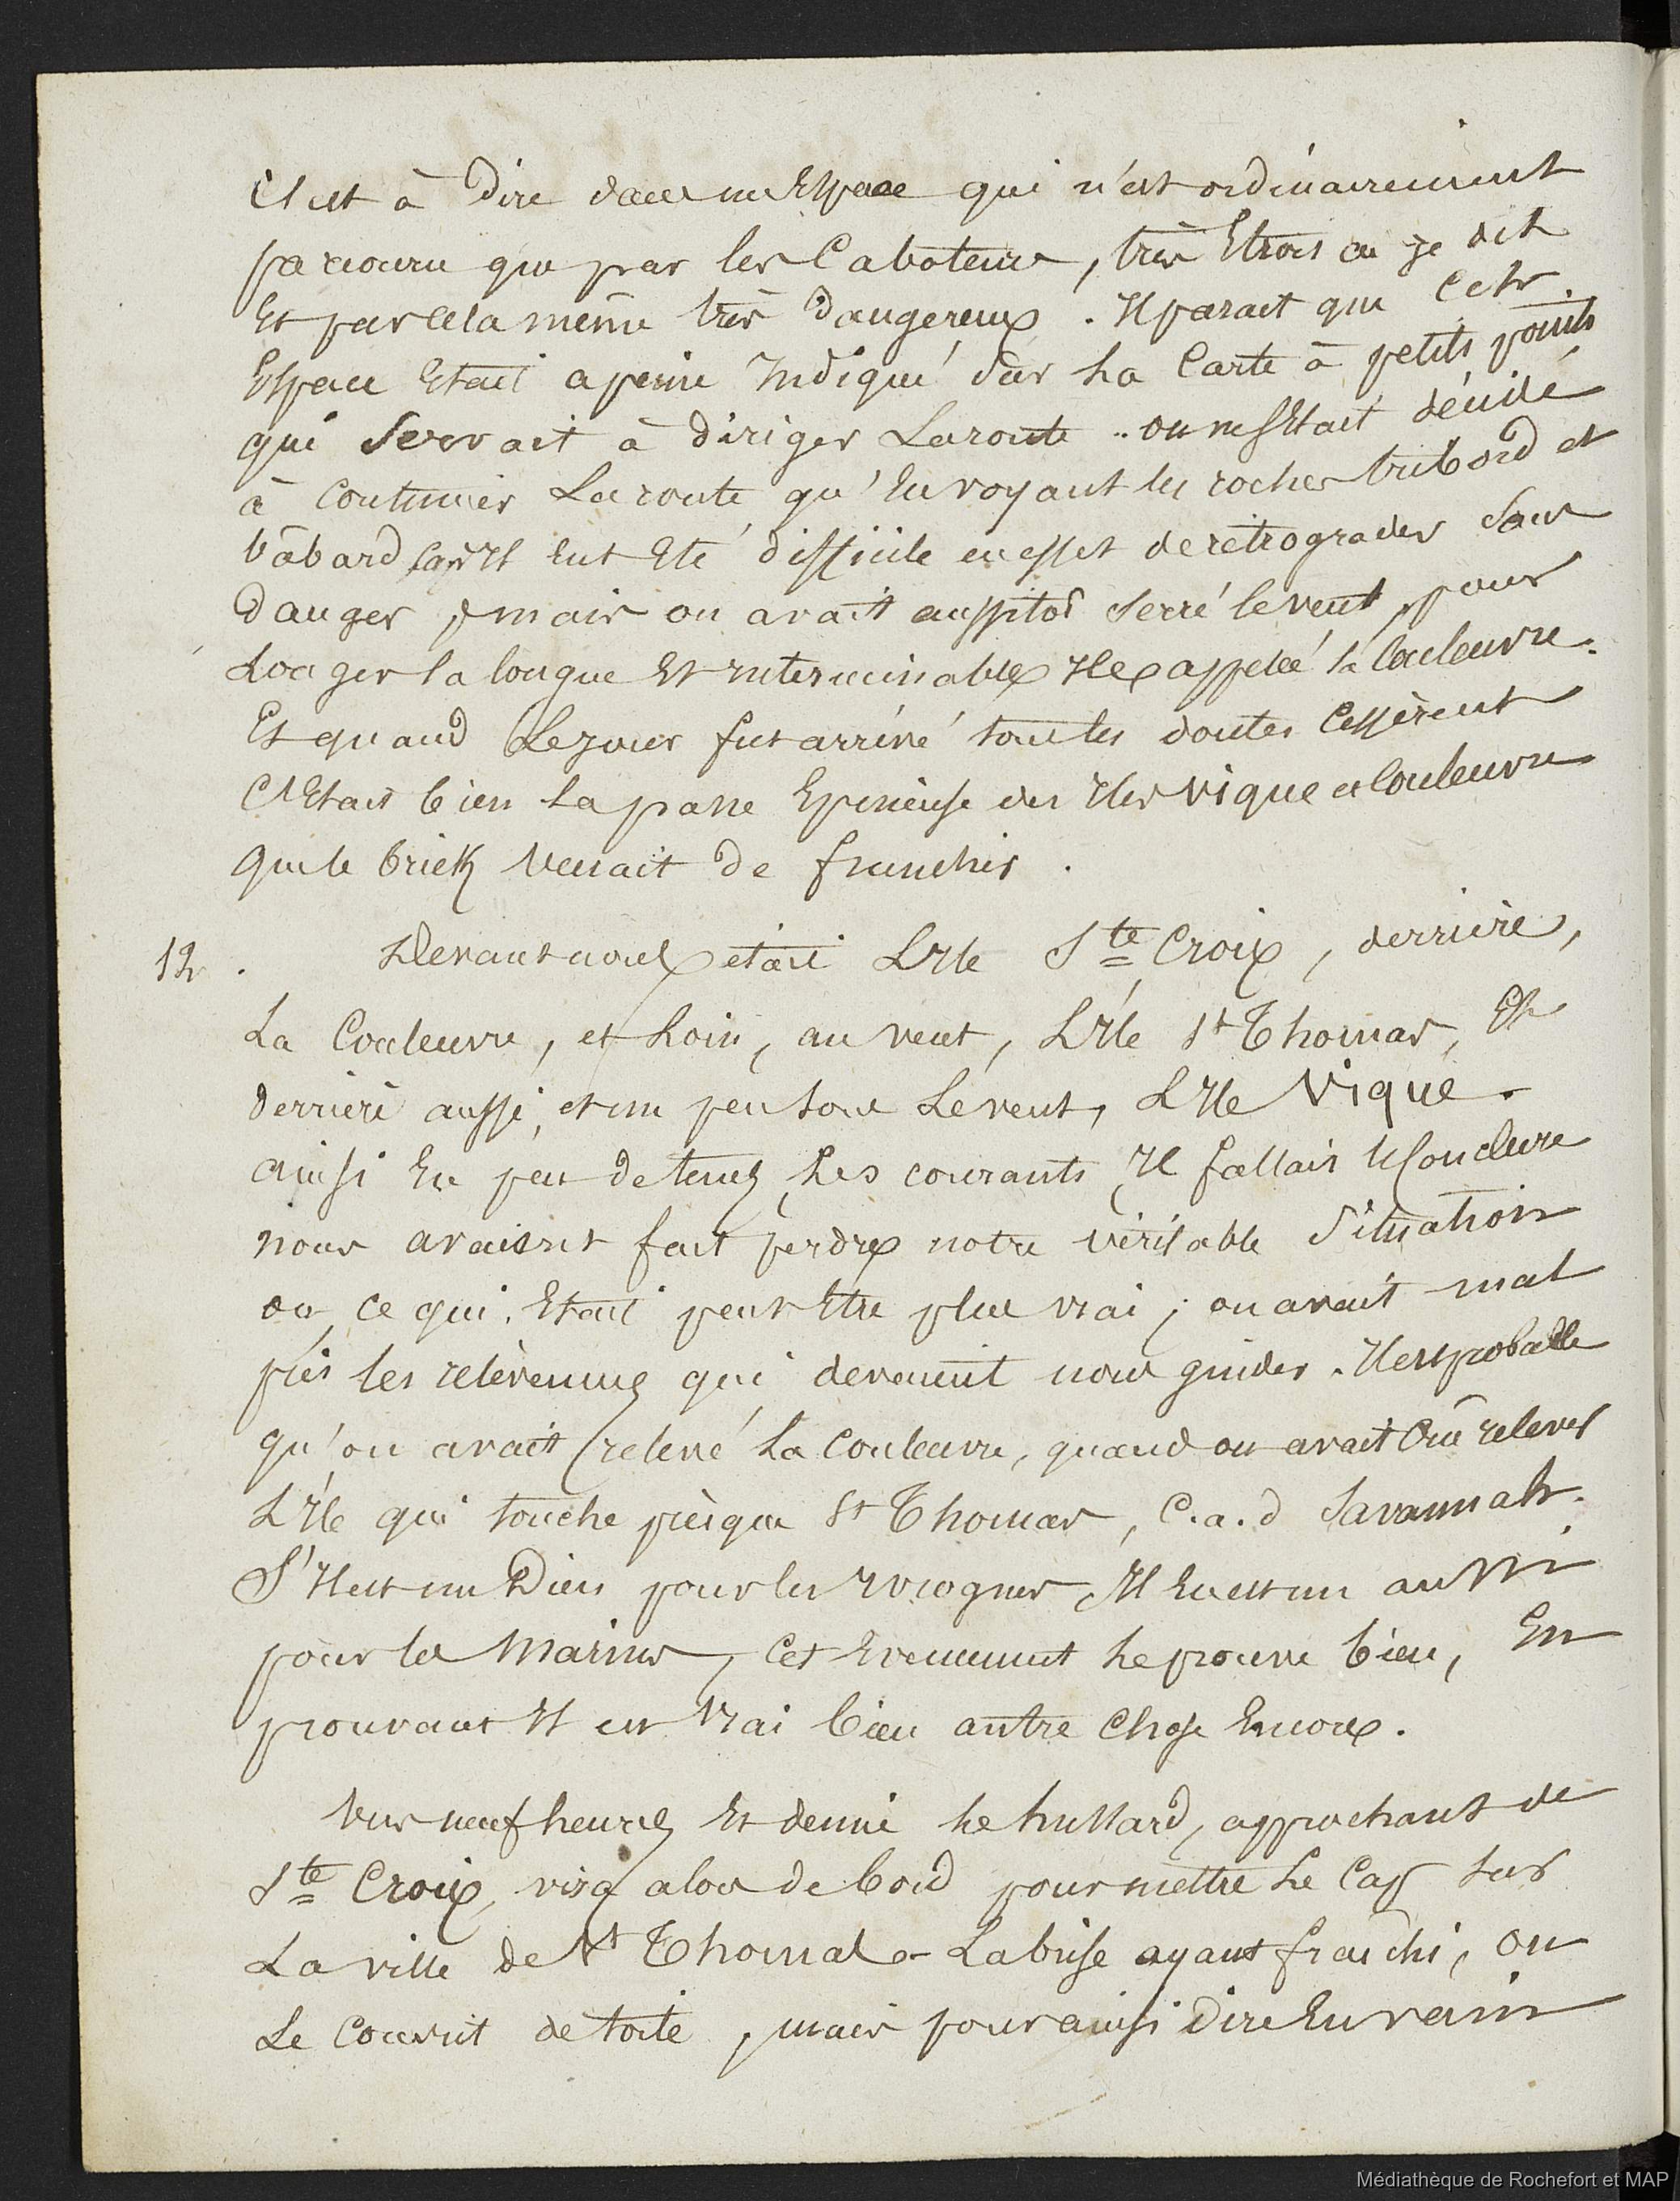 C'est à Dire dans un Espace qui n'est ordinairement
parcouru que par les Caboteurs, très Etrois ai je dit
Et par cela même très Dangereux. Il parait que Cet
Espace Etait a peine Indiqué sur La Carte à petits points
qui Servait à diriger La route .. on ne s'Etait décidé
à Continuer La route qu'En voyant les roches tribord et
bâbard, car Il eut Eté difficile en effet de rétrograder Sans
Danger, mais on avait aussitot Serré le vent, pour
Longer la longue Et interminable Ile appelée la Couleuvre.
Et quand Le jour fut arrivé tous les doutes Cessèrent
C'Etait bien La passe Epineuse des Iles Vique et Couleuvre
Que le brick Venait de franchir.
12. Devant nous était L'Ile Ste Croix, derrière,
La Couleuvre, et Loin, au vent, L'Ile St Thomas, Et
derrière aussi, et un peu sous Le vent, L'Ile Vique.
Ainsi En peu de tems Les courants, Il fallait le Conclure
nous avaient fait perdre notre véritable Situation
ou, ce qui Etait peut Etre plus vrai; on avait mal
pris les relèvemens qui devaient nous guider. Il est probable
qu'on avait relevé La Couleuvre, quand on avait Crû relever
L'Ile qui touche presque St Thomas, C.a.d Savannah.
S'Il est un Dieu pour les Ivrognes, Il En est un aussi
pour les Marins, Cet Evenement Le prouve bien, En
prouvant Il est Vrai bien autre Chose Encore.
Vers neuf heures Et demie Le hussard, approchant de
Ste Croix, vira alors de bord pour mettre Le Cap sur
La ville de St Thomas - La brise ayant fraîchi, on
Le Couvrit de toile, mais pour ainsi Dire En vain
Médiathèque de Rochefort et MAP